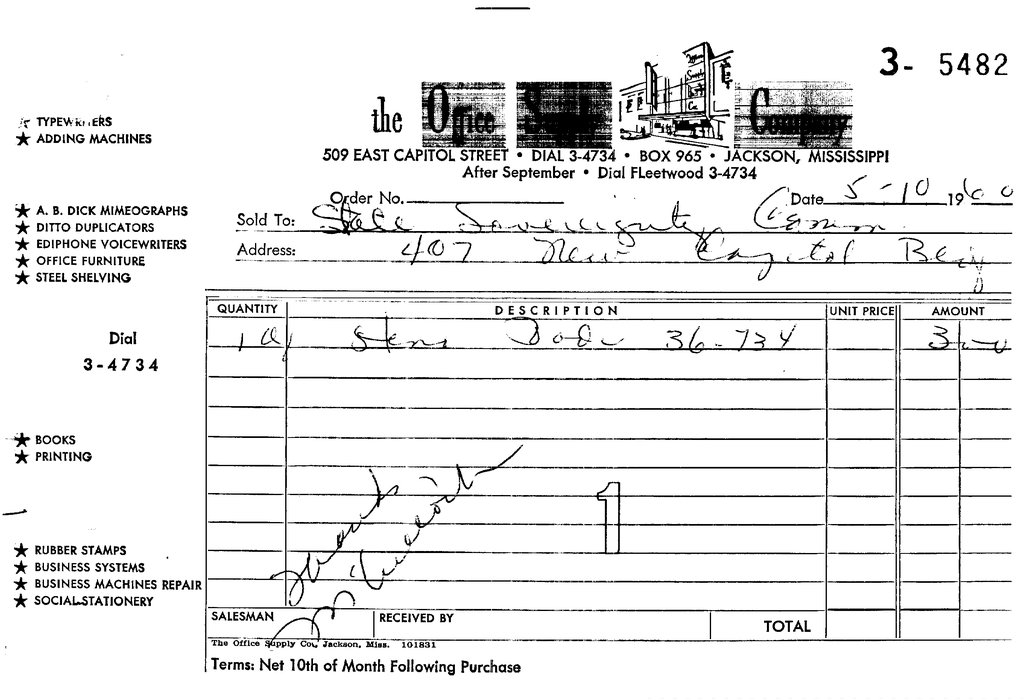 3- 5482
the Office Supply Company
509 EAST CAPITOL STREET • DIAL 3-4734 • BOX 965 • JACKSON, MISSISSIPPI
After September • Dial FLeetwood 3-4734
★ TYPEWRITERS
★ ADDING MACHINES
★ A. B. DICK MIMEOGRAPHS
★ DITTO DUPLICATORS
★ EDIPHONE VOICEWRITERS
★ OFFICE FURNITURE
★ STEEL SHELVING
Dial
3-4734
★ BOOKS
★ PRINTING
★ RUBBER STAMPS
★ BUSINESS SYSTEMS
★ BUSINESS MACHINES REPAIR
★ SOCIAL STATIONERY
Order No. Date 5-10 1960
Sold To: State Sovereignty Comm.
Address: 407 New Capitol Bldg
QUANTITY DESCRIPTION UNIT PRICE AMOUNT
Steno 36-734 3 00
Thanks
1
SALESMAN RECEIVED BY TOTAL
The Office Supply Co., Jackson, Miss. 101831
Terms: Net 10th of Month Following Purchase